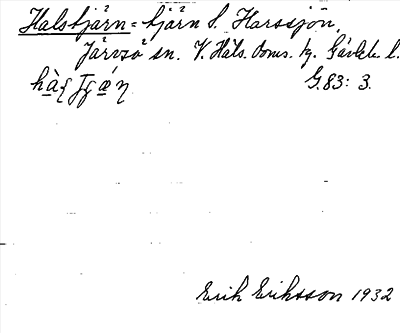 Halstjärn = tjärn S. Harssjön.
Järvsö sn. V. Häls. doms. tg. Gävleb. l.
G. 83: 3.
Erik Eriksson 1932